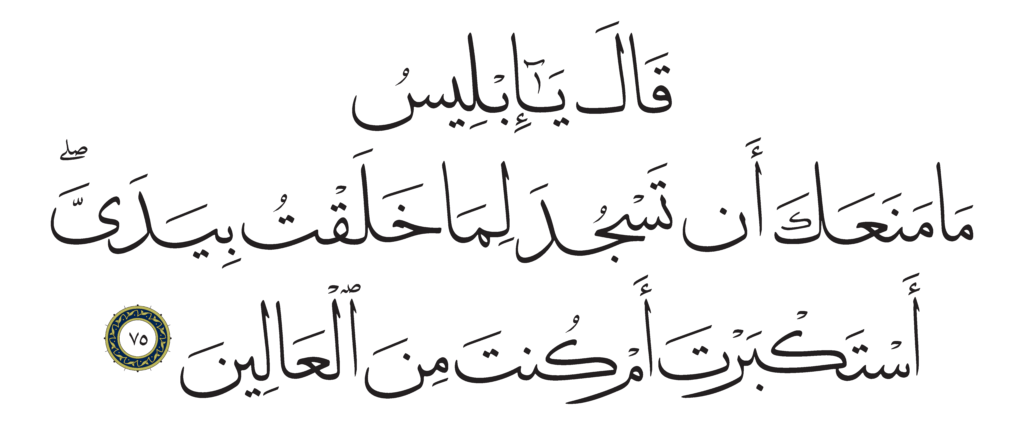 قَالَ يَـٰٓإِبْلِيسُ
مَا مَنَعَكَ أَن تَسْجُدَ لِمَا خَلَقْتُ بِيَدَىَّۖ
أَسْتَكْبَرْتَ أَمْ كُنتَ مِنَ ٱلْعَالِينَ ٧٥